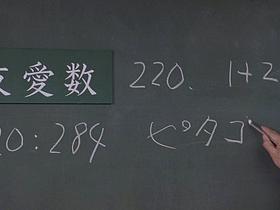 友愛数
220. 1+2
20:284 ピタゴ